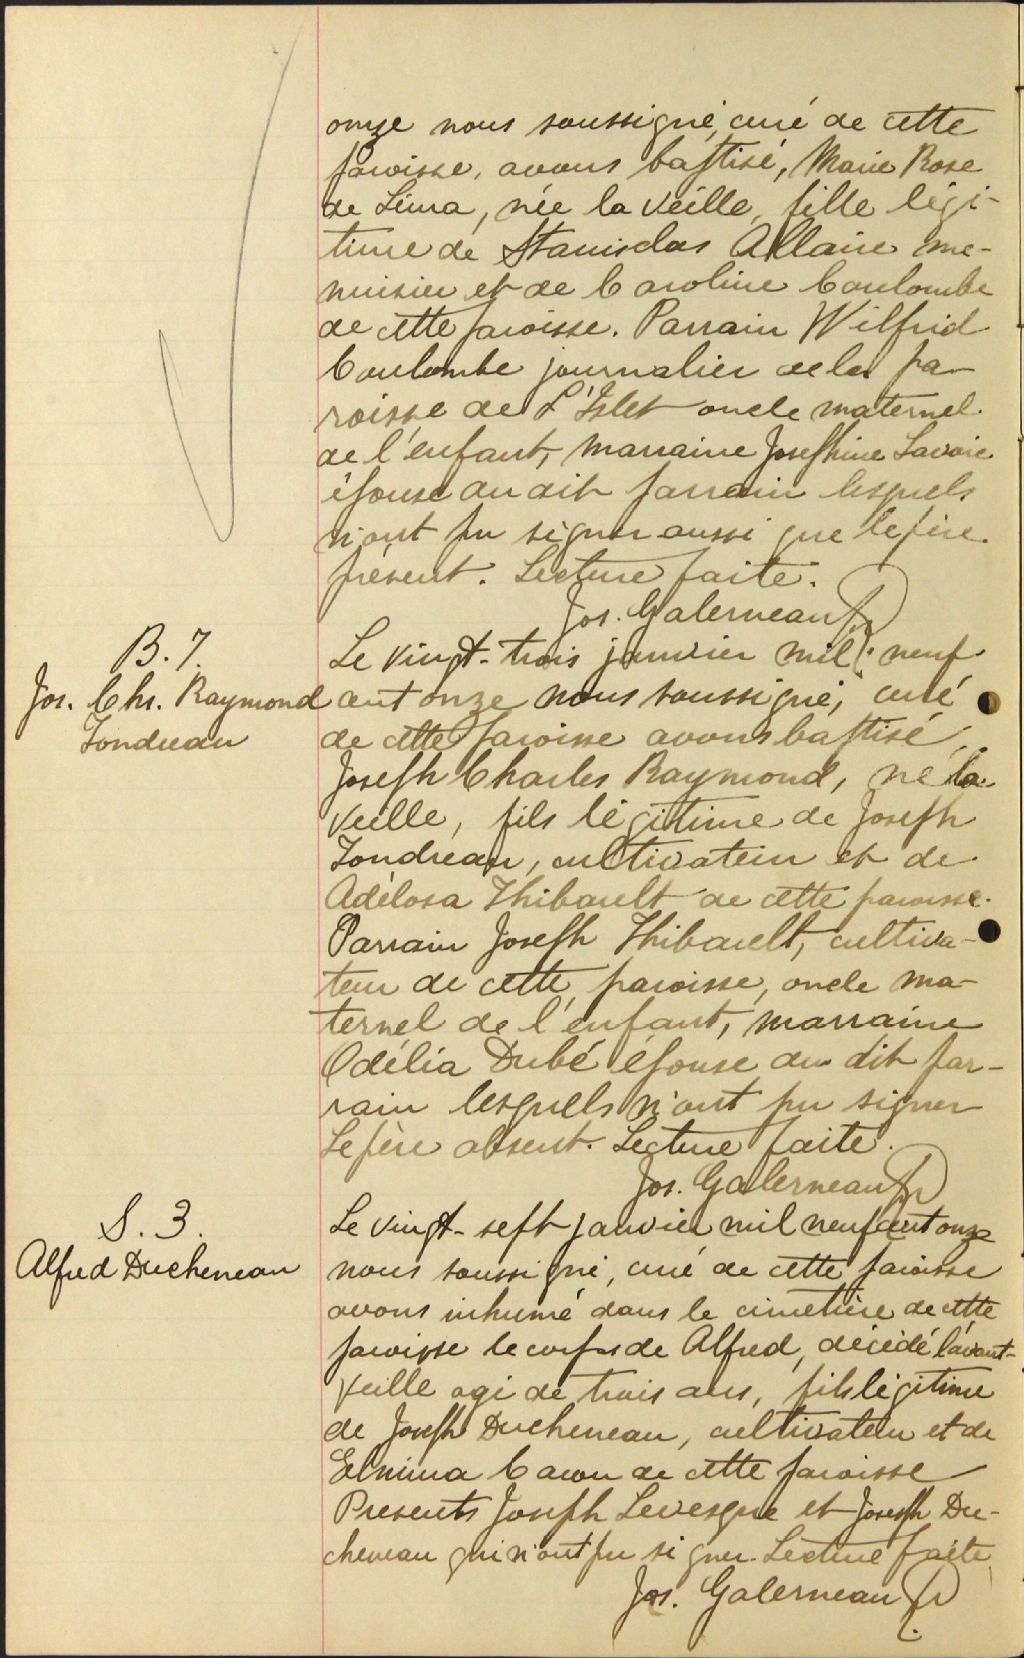 onze nous soussigné, curé de cette
paroisse, avons baptisé, Marie Rose
de Lima, née la veille, fille légi-
time de Stanislas Allaire me-
nuisier et de Caroline Coulombe
de cette paroisse. Parrain Wilfrid
Coulombe journalier de la pa-
roisse de L'Islet oncle maternel
de l'enfant, marraine Josephine Lavoie
épouse du dit parrain lesquels
n'ont pu signer aussi que le père
présent. Lecture faite.
Jos. Galerneau Ptr
B. 7.
Jos. Chs. Raymond
Fondreau
Le vingt-trois janvier mil neuf
cent onze nous soussigné, curé
de cette paroisse avons baptisé
Joseph Charles Raymond, né la
veille, fils légitime de Joseph
Fondreau, cultivateur et de
Adélosa Thibault de cette paroisse.
Parrain Joseph Thibault, cultiva-
teur de cette paroisse, oncle ma-
ternel de l'enfant, marraine
Odélia Dubé épouse du dit par-
rain lesquels n'ont pu signer
Le père absent. Lecture faite.
Jos. Galerneau Ptr
S. 3.
Alfred Ducheneau
Le vingt-sept janvier mil neuf cent onze
nous soussigné, curé de cette paroisse
avons inhumé dans le cimetière de cette
paroisse le corps de Alfred, décédé l'avant-
veille agé de trois ans, fils légitime
de Joseph Ducheneau, cultivateur et de
Elmina Caron de cette paroisse
Presents Joseph Levesque et Joseph Du-
cheneau qui n'ont pu signer. Lecture faite
Jos. Galerneau Ptr